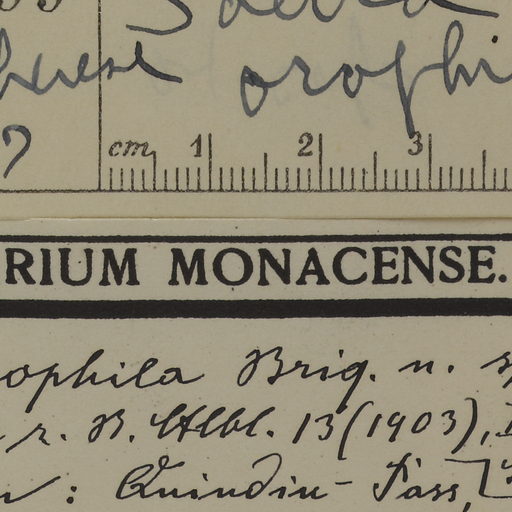 orophi
7
cm 1 2 3
RIUM MONACENSE.
ophila Briq. n. s
r. B. 13 (1903),
: Quindiu- Pass,